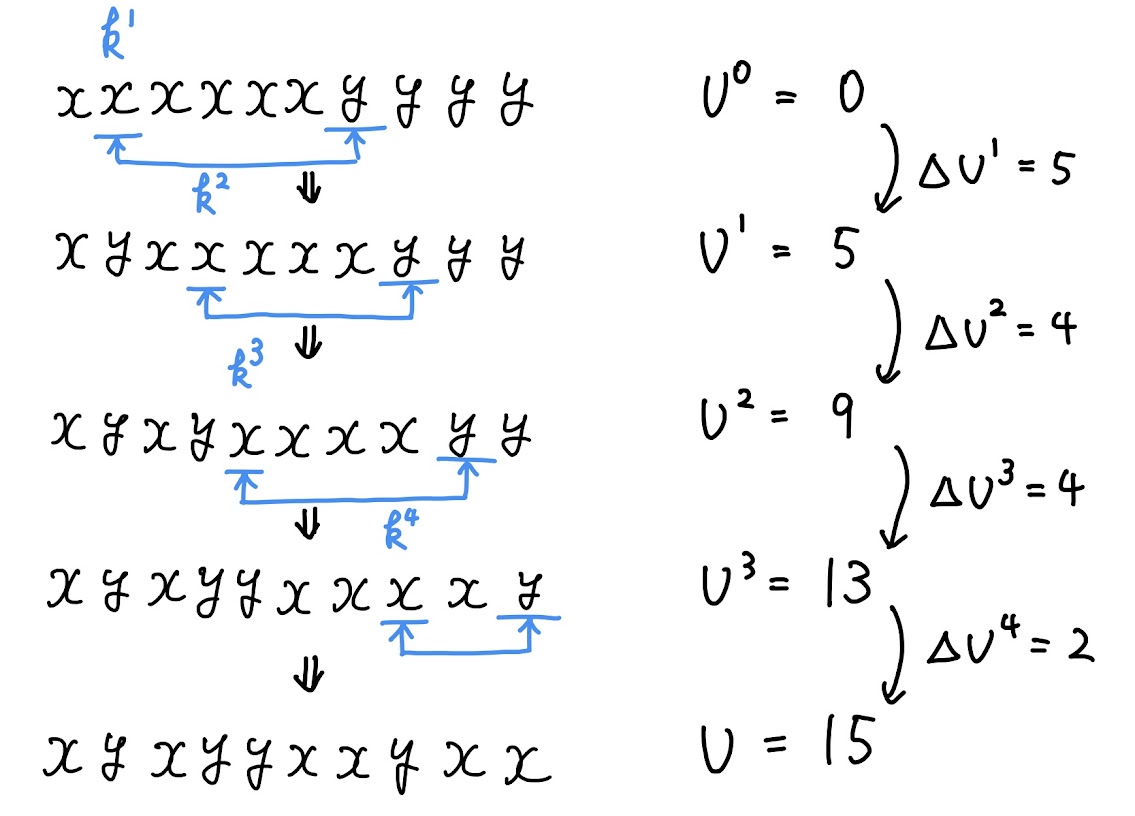 k¹
x x x x x x y y y y
k²
⇓
x y x x x x x y y y
k³
⇓
x y x y x x x x y y
k⁴
⇓
x y x y y x x x x y
⇓
x y x y y x x y x x
U⁰ = 0
ΔU¹ = 5
U¹ = 5
ΔU² = 4
U² = 9
ΔU³ = 4
U³ = 13
ΔU⁴ = 2
U = 15